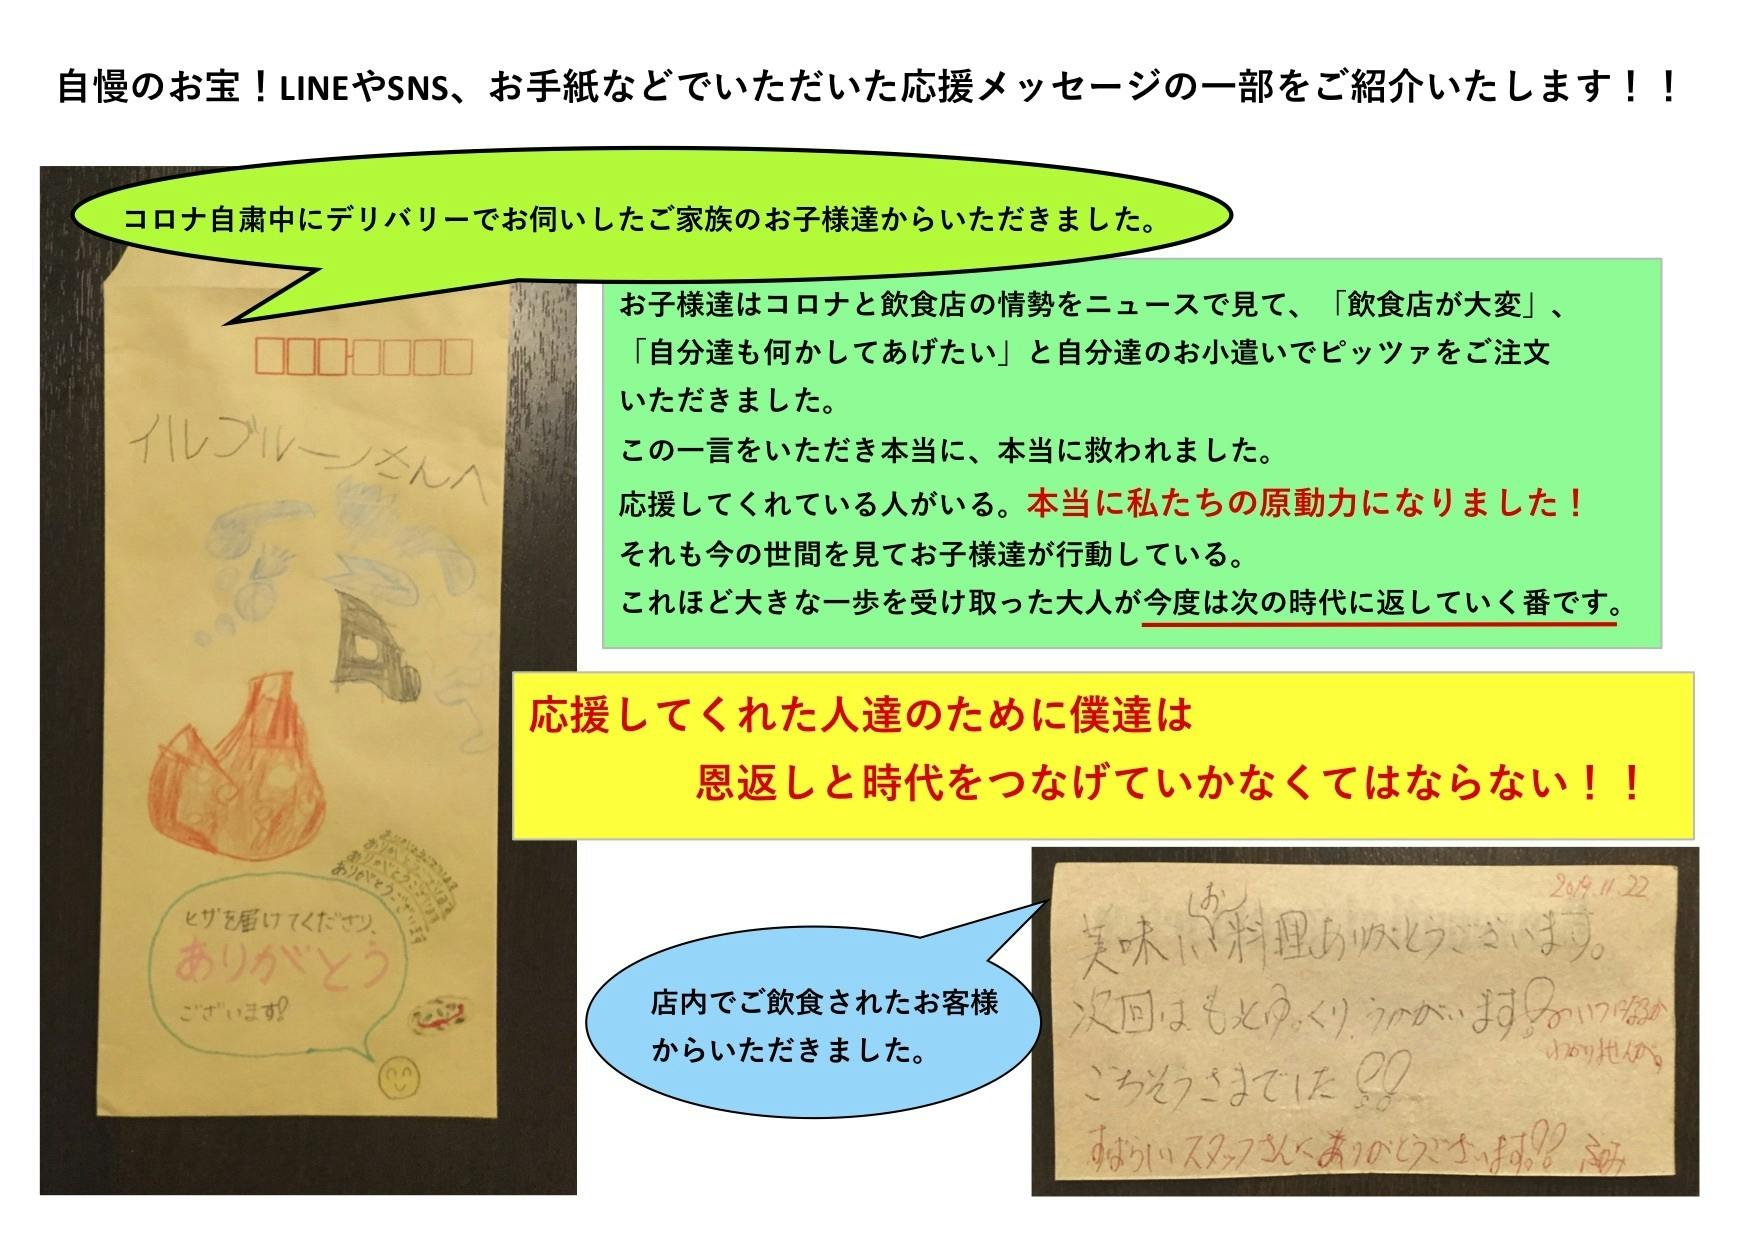 自慢のお宝！LINEやSNS、お手紙などでいただいた応援メッセージの一部をご紹介いたします！！
コロナ自粛中にデリバリーでお伺いしたご家族のお子様達からいただきました。
お子様達はコロナと飲食店の情勢をニュースで見て、「飲食店が大変」、
「自分達も何かしてあげたい」と自分達のお小遣いでピッツァをご注文
いただきました。
この一言をいただき本当に、本当に救われました。
応援してくれている人がいる。本当に私たちの原動力になりました！
それも今の世間を見てお子様達が行動している。
これほど大きな一歩を受け取った大人が今度は次の時代に返していく番です。
イルブルーノさんへ
ありがとうございます
ありがとうございます
ありがとうございます
ピザを届けてくださり、
ありがとう
ございます!!
応援してくれた人達のために僕達は
恩返しと時代をつなげていかなくてはならない！！
店内でご飲食されたお客様
からいただきました。
2019.11.22
美味しいお料理ありがとうございます。
次回はもっとゆっくりうかがいます!!
のいつになるか
わかりませんが。
ごちそうさまでした!!
すばらしいスタッフさんへありがとうございます!!